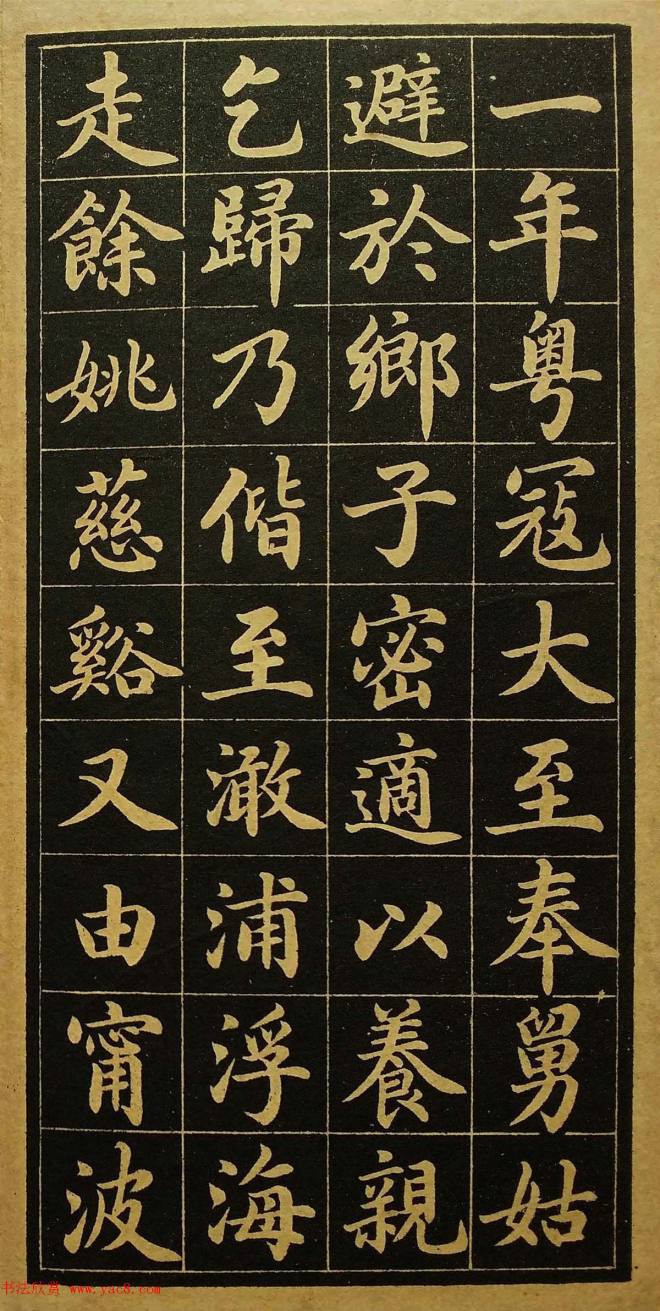 一年粤寇大至奉舅姑
避於鄉子密適以養親
乞歸乃偕至澉浦浮海
走餘姚慈谿又由甯波
书法欣赏 www.yac8.com